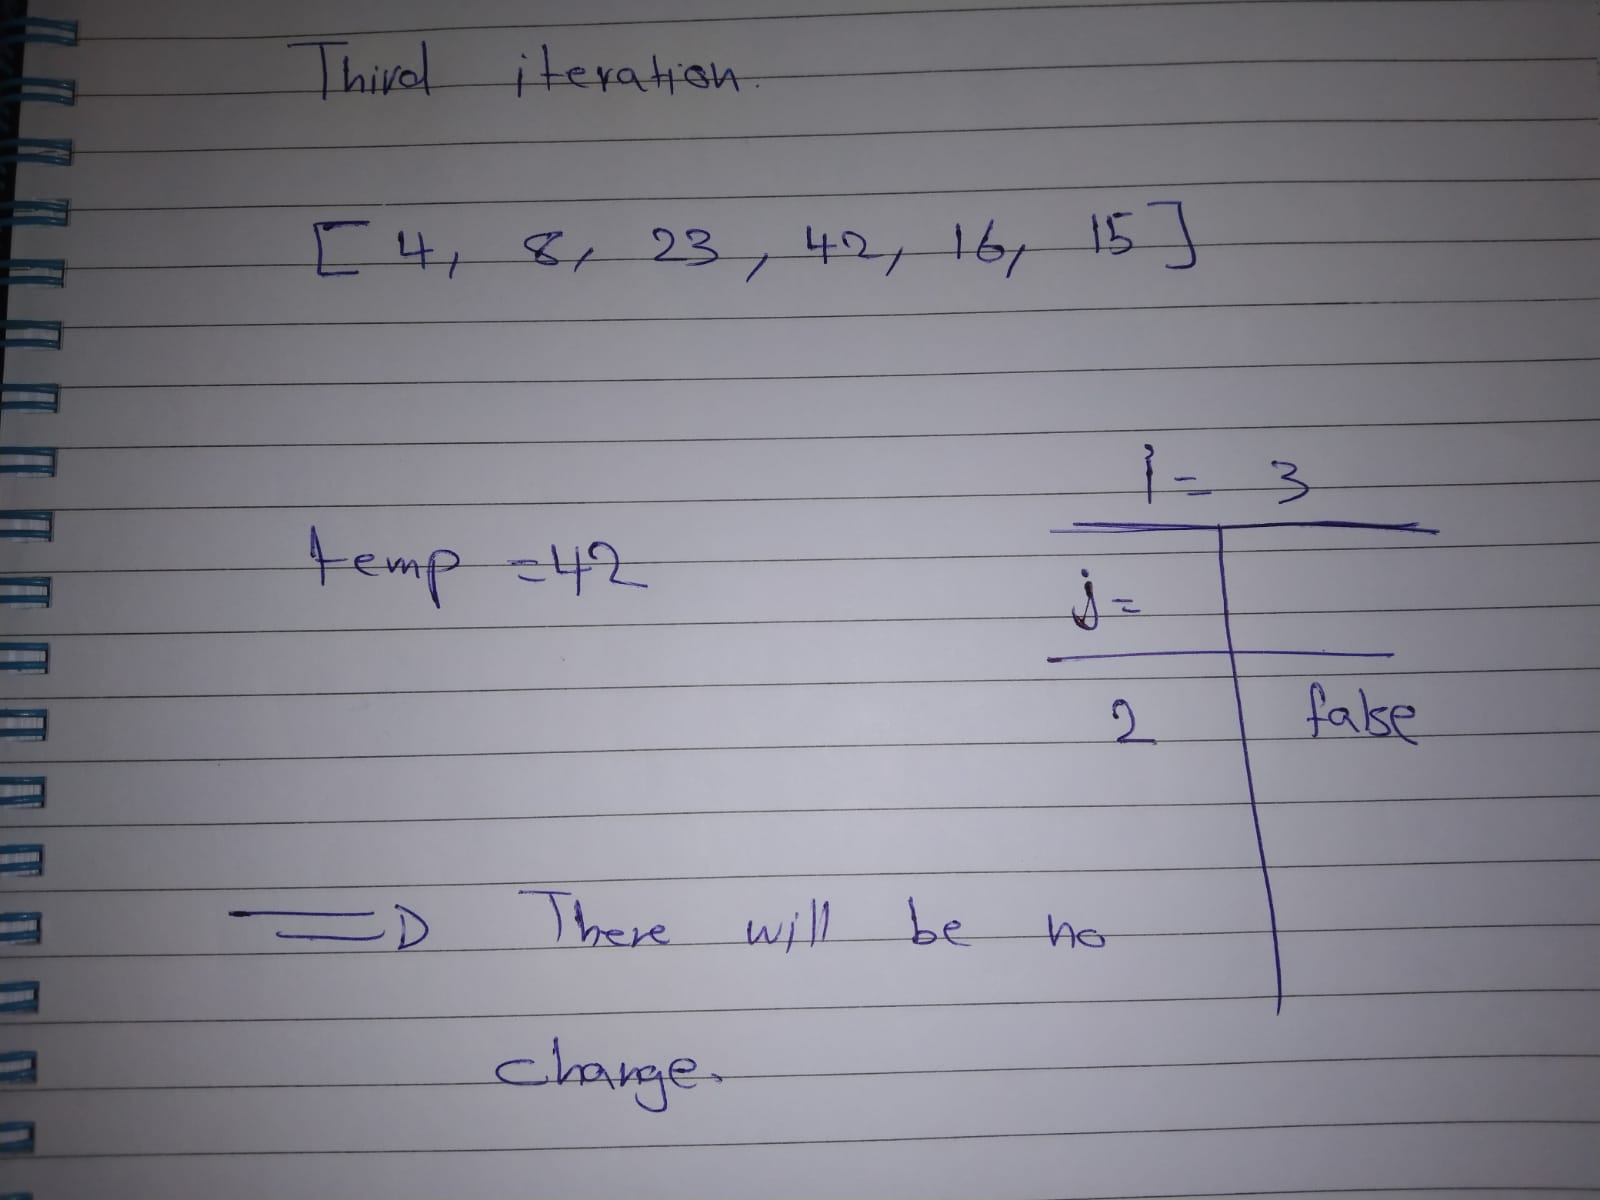 Third iteration.
[ 4, 8, 23, 42, 16, 15 ]
i = 3
temp = 42
j =
2 false
=> There will be no
change.